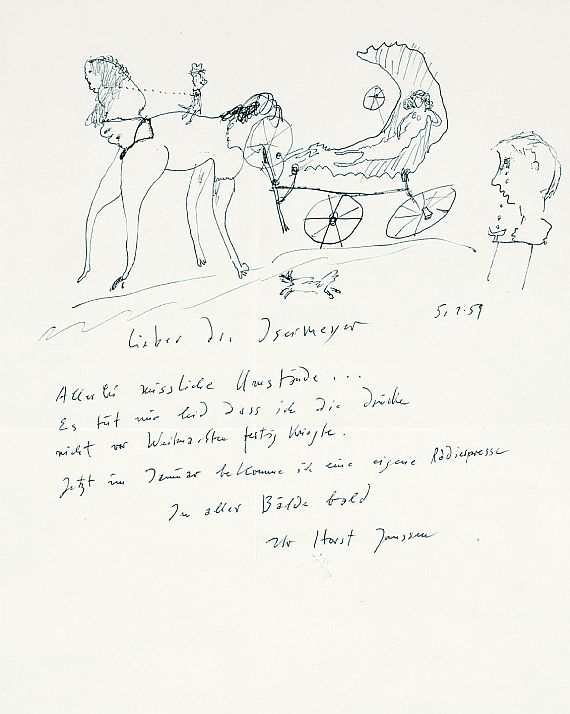 5.1.59
Lieber Dr. Isermeyer
Allerlei missliche Umstände...
Es tut mir leid dass ich die Drucke
nicht vor Weihnachten fertig kriegte.
Jetzt im Januar bekomme ich eine eigene Radierpresse
In aller Bälde bald
Ihr Horst Janssen